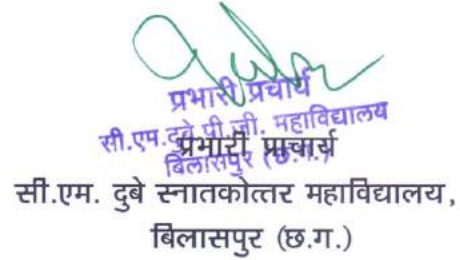 प्रभारी प्राचार्य
सी.एम.दुबे पी.जी. महाविद्यालय
बिलासपुर (छ.ग.)
प्रभारी प्राचार्य
सी.एम. दुबे स्नातकोत्तर महाविद्यालय,
बिलासपुर (छ.ग.)